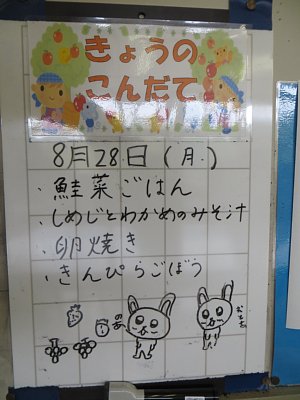 きょうの
こんだて
8月28日(月)
・鮭菜ごはん
・しめじとわかめのみそ汁
・卵焼き
・きんぴらごぼう